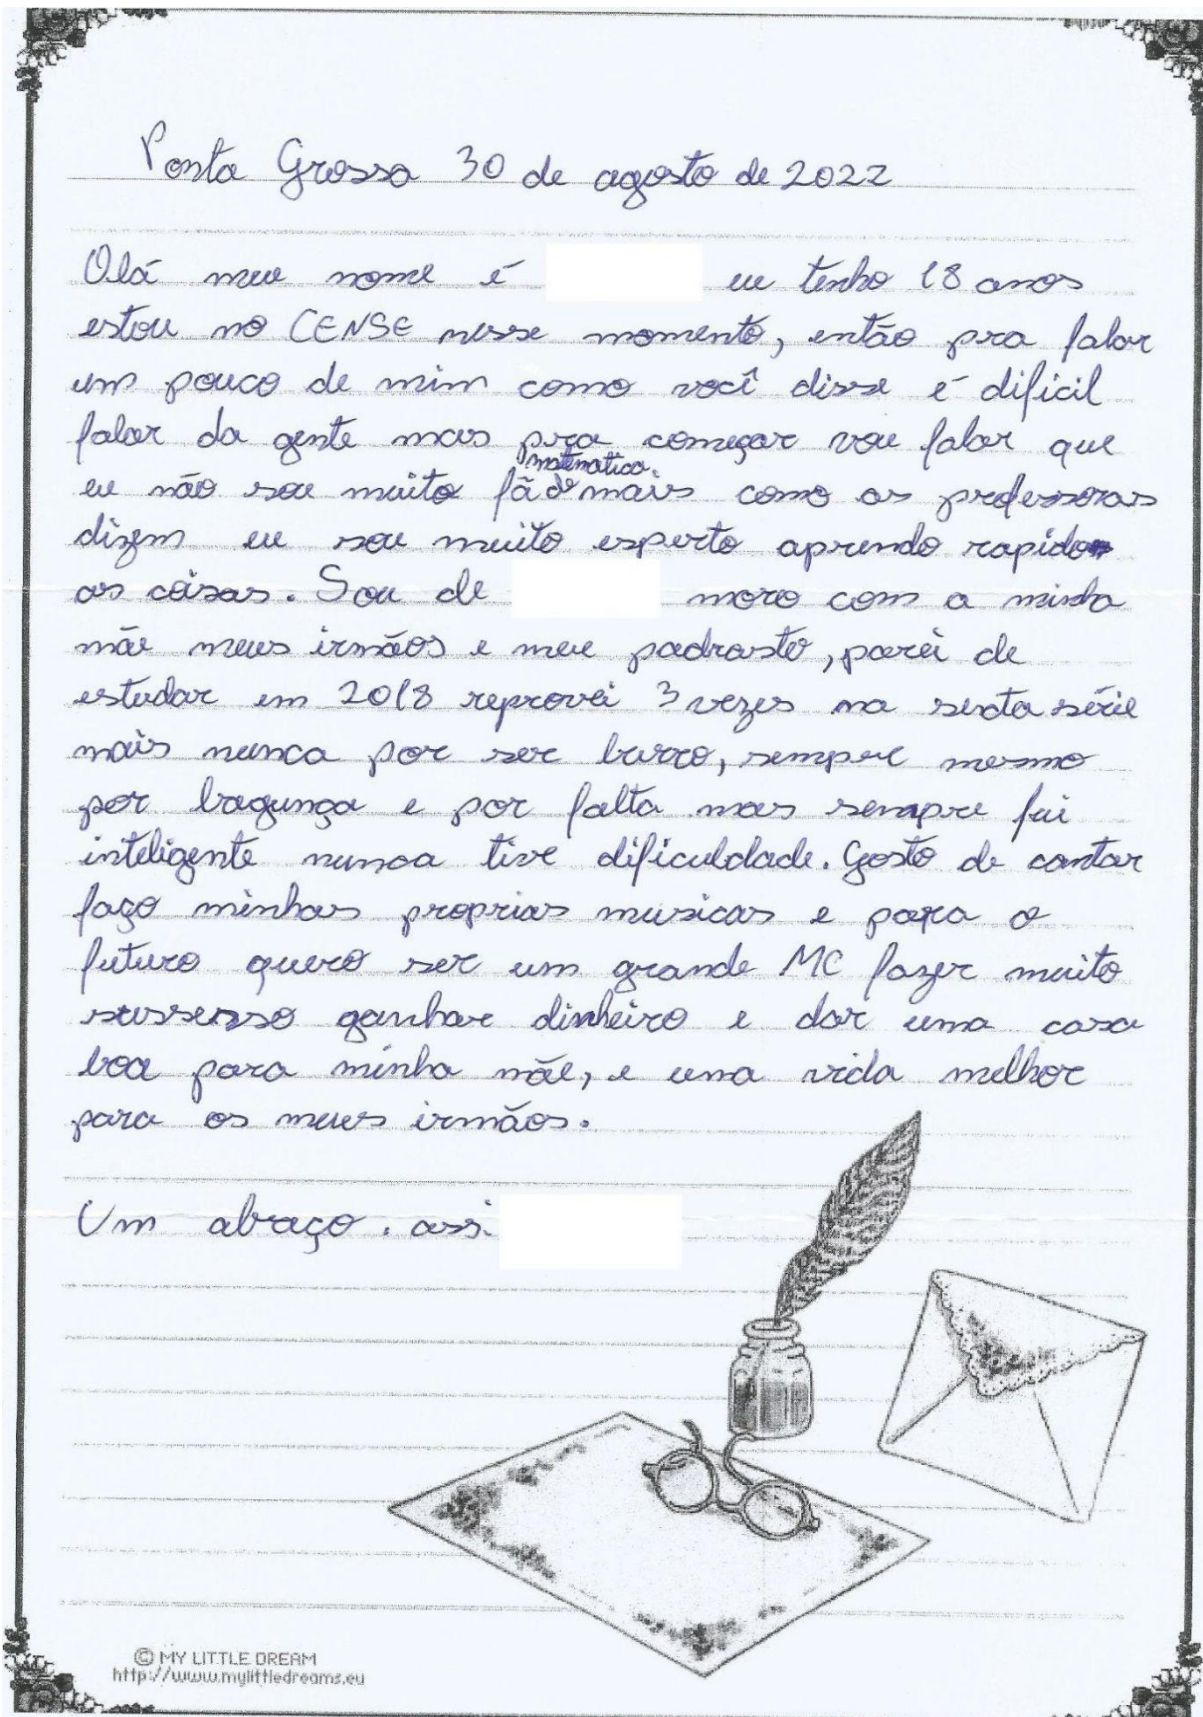 Ponta Grossa 30 de agosto de 2022
Olá meu nome é eu tenho 18 anos
estou no CENSE nesse momento, então pra falar
um pouco de mim como você disse é dificil
falar da gente mas pra começar vou falar que
matematica.
eu não sou muito fã de mais como as professoras
dizem eu sou muito esperto aprendo rapido
as coisas. Sou de moro com a minha
mãe meus irmãos e meu padrasto, parei de
estudar em 2018 reprovei 3 vezes na sexta série
mais nunca por ser burro, sempre mesmo
por bagunça e por falta mas sempre fui
inteligente nunca tive dificuldade. Gosto de cantar
faço minhas proprias musicas e para o
futuro quero ser um grande MC fazer muito
sussesso ganhar dinheiro e dar uma casa
boa para minha mãe, e uma vida melhor
para os meus irmãos.
Um abraço. ass:
© MY LITTLE DREAM
http://www.mylittledreams.eu